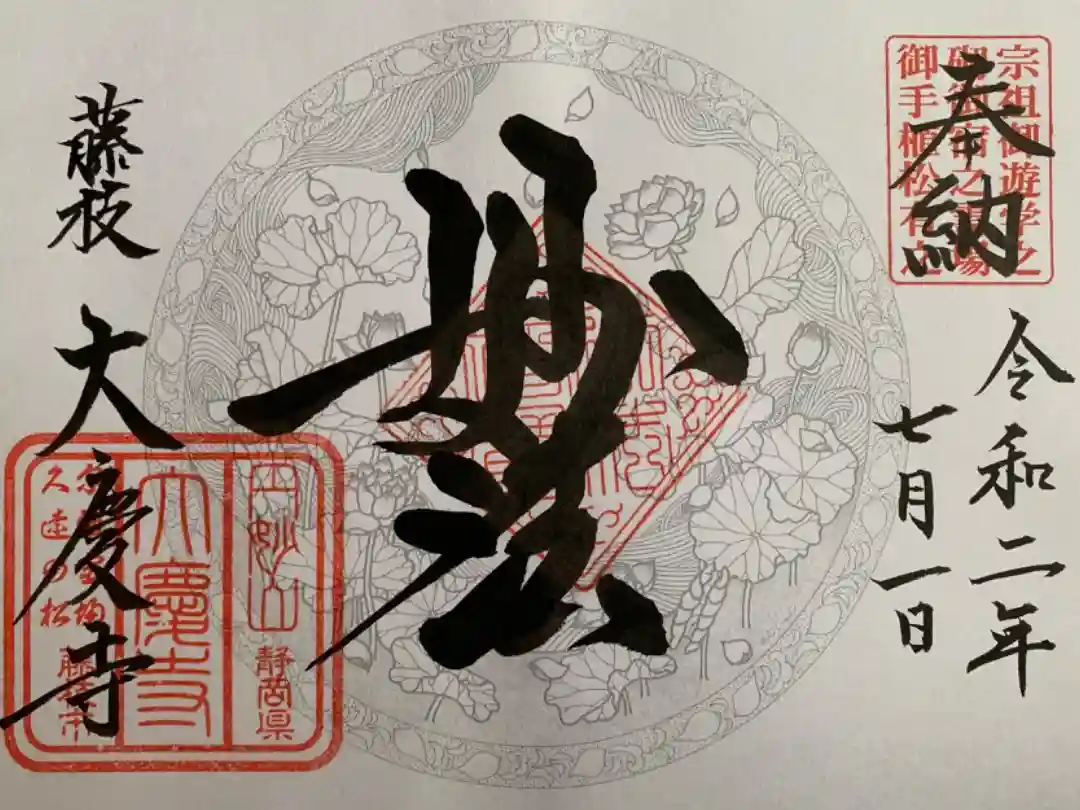 奉納
宗祖御遊学之
砌御宿之霊場
御手植松有之
令和二年
七月一日
妙法
藤枝
大慶寺
円妙山
静岡県
大慶寺
藤枝市
久遠の松